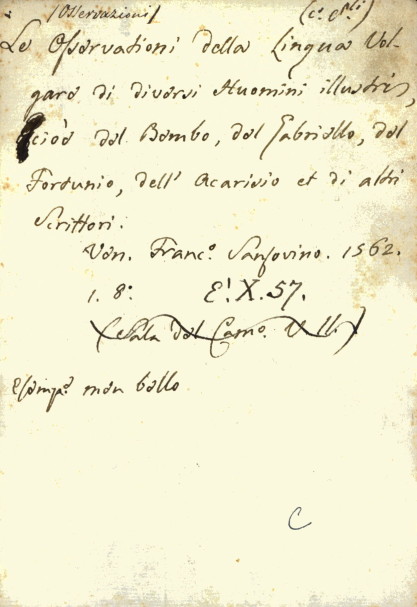 (Osservazioni)
Le Osservationi della Lingua Vol-
gare di diversi Huomini illustri,
cioè del Bembo, del Gabriello, del
Fortunio, dell' Acarisio et di altri
Scrittori.
Ven. Franc.º Sansovino. 1562.
1. 8.º E'. X. 57.
(Sala del Cam.º
Esemp.º men bello
C